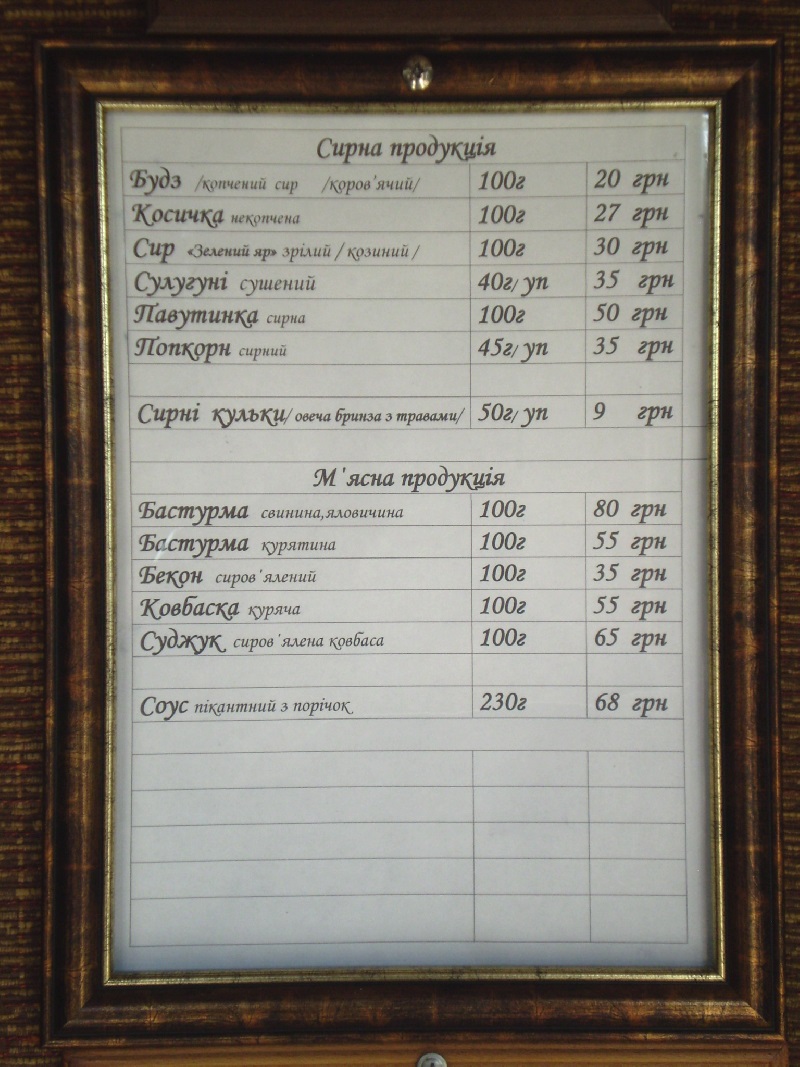 Сирна продукція
Будз /копчений сир /коров'ячий/ 100г 20 грн
Косичка некопчена 100г 27 грн
Сир «Зелений яр» зрілий / козиний / 100г 30 грн
Сулугуні сушений 40г/ уп 35 грн
Павутинка сирна 100г 50 грн
Попкорн сирний 45г/ уп 35 грн
Сирні кульки/ овеча бринза з травами/ 50г/ уп 9 грн
М'ясна продукція
Бастурма свинина,яловичина 100г 80 грн
Бастурма курятина 100г 55 грн
Бекон сиров'ялений 100г 35 грн
Ковбаска куряча 100г 55 грн
Суджук сиров'ялена ковбаса 100г 65 грн
Соус пікантний з порічок 230г 68 грн